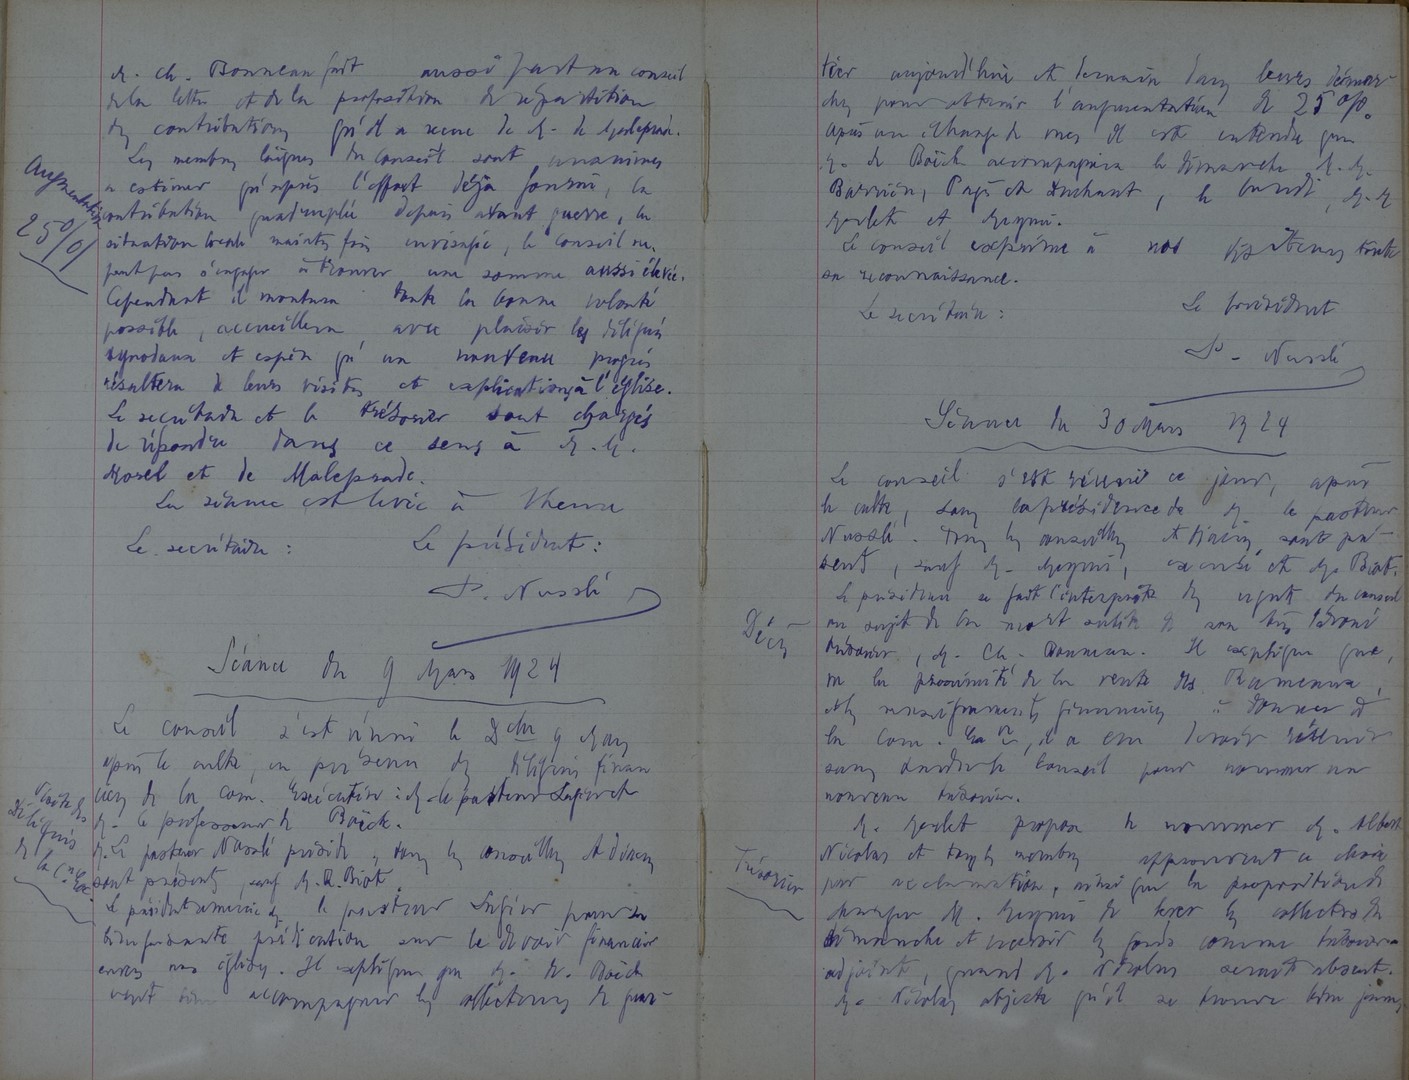 M. Ch. Bonneau fait aussi part au conseil
de la lettre et de la proposition de répartition
des contributions qu'il a reçue de M. de Maleprade.
Les membres laïques du conseil sont unanimes
à estimer qu'après l'effort déjà fourni, la
contribution quadruplée depuis avant guerre, la
situation locale maintes fois envisagée, le conseil ne
peut pas s'engager à trouver une somme aussi élevée.
Cependant il montrera toute la bonne volonté
possible, accueillera avec plaisir les délégués
synodaux et espère qu'un nouveau progrès
résultera de leurs visites et explications à l'église.
Le secrétaire et le trésorier sont chargés
de répondre dans ce sens à M. M.
Morel et de Maleprade.
La séance est levée à heure
Le secrétaire : Le président :
P. Nusslé
Augmentation
25 0/0
Séance du 9 Mars 1924
Le conseil s'est réuni le Dche 9 Mars
après le culte, en présence des délégués finan
ciers de la Com. Exécutive : M. le pasteur
M. le professeur de Boëck.
M. le pasteur Nusslé préside, tous les conseillers et diacres
sont présents, sauf M. R. Biot.
Le président remercie M. le pasteur pour sa
bienfaisante prédication sur le devoir financier
envers nos églises. Il explique que M. de Boëck
veut bien accompagner les collecteurs de quar-
Visite des
Délégués
de la Con Exve
tier aujourd'hui et demain dans leurs démar-
ches pour obtenir l'augmentation de 25 0/0.
Après un échange de vues il est entendu que
M. de Boëck accompagnera le dimanche, M. M.
Barrière, Pagès et Duchant, le lundi, M. M
et Meynié.
Le conseil exprime à nos visiteurs toute
sa reconnaissance.
Le secrétaire : Le président
P. Nusslé
Séance du 30 Mars 1924
Le conseil s'est réuni ce jour, après
le culte, sous la présidence de M. le pasteur
Nusslé. Tous les conseillers et diacres sont pré-
sents, sauf M. Meynié, excusé et M. Biot.
Le président se fait l'interprète des regrets du conseil
au sujet de la mort subite de son très dévoué
trésorier, M. Ch. Bonneau. Il explique que,
vu la proximité de la vente des Rameaux,
et les renseignements financiers à donner à
la Com. Exve, il a cru devoir réunir
sans tarder le Conseil pour nommer un
nouveau trésorier.
Décès
M. propose de nommer M. Albert
Nicolas et tous les membres approuvent ce choix
par acclamation, ainsi que la proposition de
charger M. Meynié de lever les collectes du
dimanche et recevoir les fonds comme trésorier
adjoint, quand M. Nicolas serait absent.
M. Nicolas objecte qu'il se trouve bien jeune
Trésorier